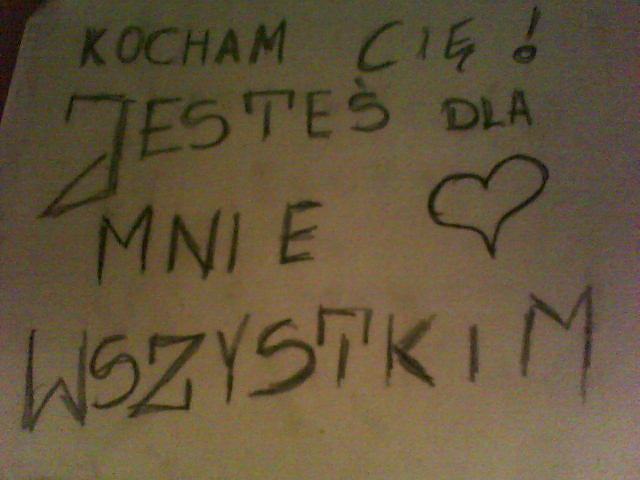 KOCHAM CIĘ!
JESTEŚ DLA
MNIE
WSZYSTKIM